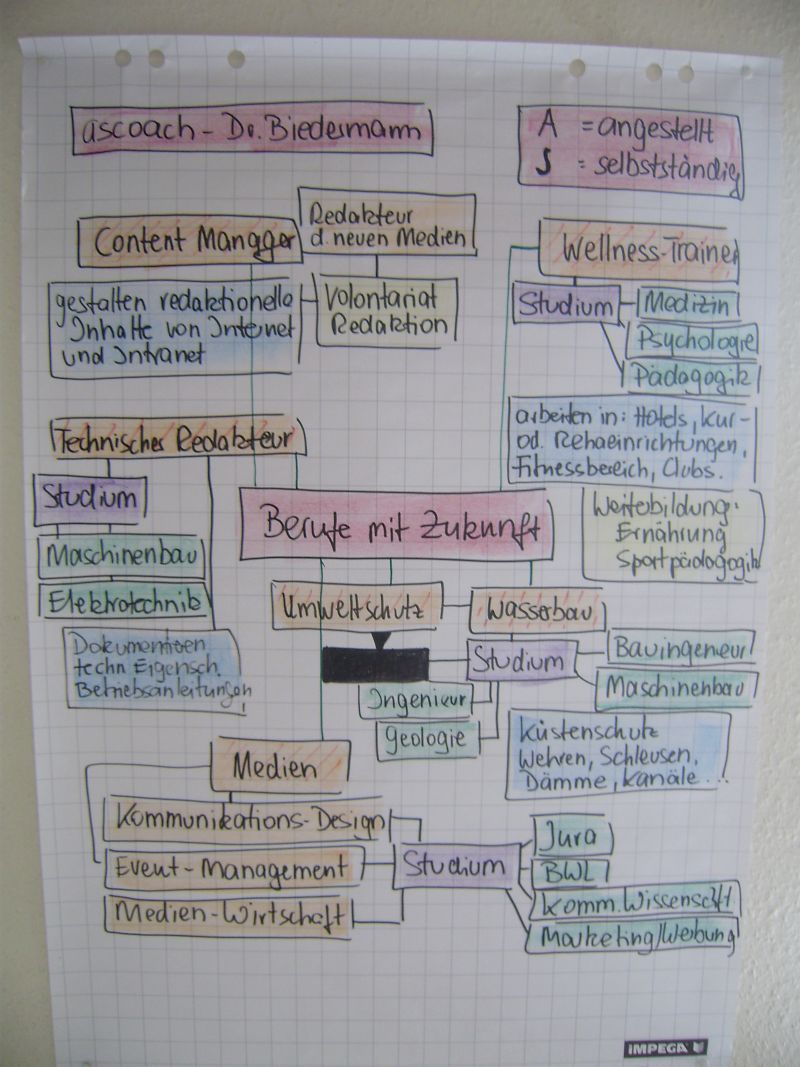 ascoach - Dr. Biedermann
A = angestellt
S = selbstständig
Content Manager
Redakteur
d. neuen Medien
gestalten redaktionelle
Inhalte von Internet
und Intranet
Volontariat
Redaktion
Wellness-Trainer
Studium
Medizin
Psychologie
Pädagogik
arbeiten in: Hotels, Kur-
od. Rehaeinrichtungen,
Fitnessbereich, Clubs.
Weitebildung:
Ernährung
Sportpädagogik
Technischer Redakteur
Studium
Maschinenbau
Elektrotechnik
Dokumentieren
techn Eigensch.
Betriebsanleitungen
Berufe mit Zukunft
Umweltschutz
Wasserbau
Studium
Bauingenieur
Maschinenbau
Ingenieur
Geologie
Küstenschutz
Wehren, Schleusen,
Dämme, Kanäle ...
Medien
Kommunikations-Design
Event-Management
Medien-Wirtschaft
Studium
Jura
BWL
Komm.Wissenschft
Marketing/Werbung
IMPEGA